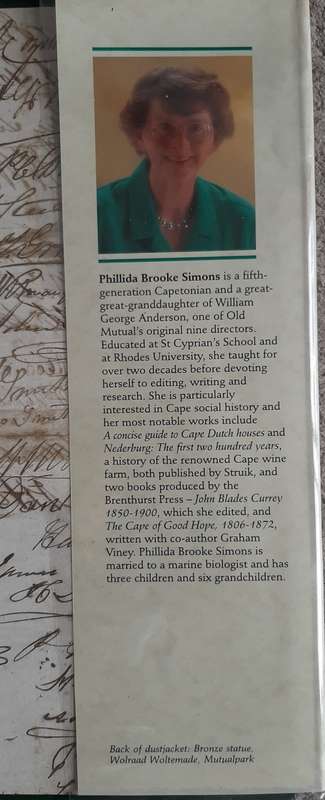 Phillida Brooke Simons is a fifth-
generation Capetonian and a great-
great-granddaughter of William
George Anderson, one of Old
Mutual's original nine directors.
Educated at St Cyprian's School and
at Rhodes University, she taught for
over two decades before devoting
herself to editing, writing and
research. She is particularly
interested in Cape social history and
her most notable works include
A concise guide to Cape Dutch houses and
Nederburg: The first two hundred years,
a history of the renowned Cape wine
farm, both published by Struik, and
two books produced by the
Brenthurst Press – John Blades Currey
1850-1900, which she edited, and
The Cape of Good Hope, 1806-1872,
written with co-author Graham
Viney. Phillida Brooke Simons is
married to a marine biologist and has
three children and six grandchildren.
Back of dustjacket: Bronze statue,
Wolraad Woltemade, Mutualpark